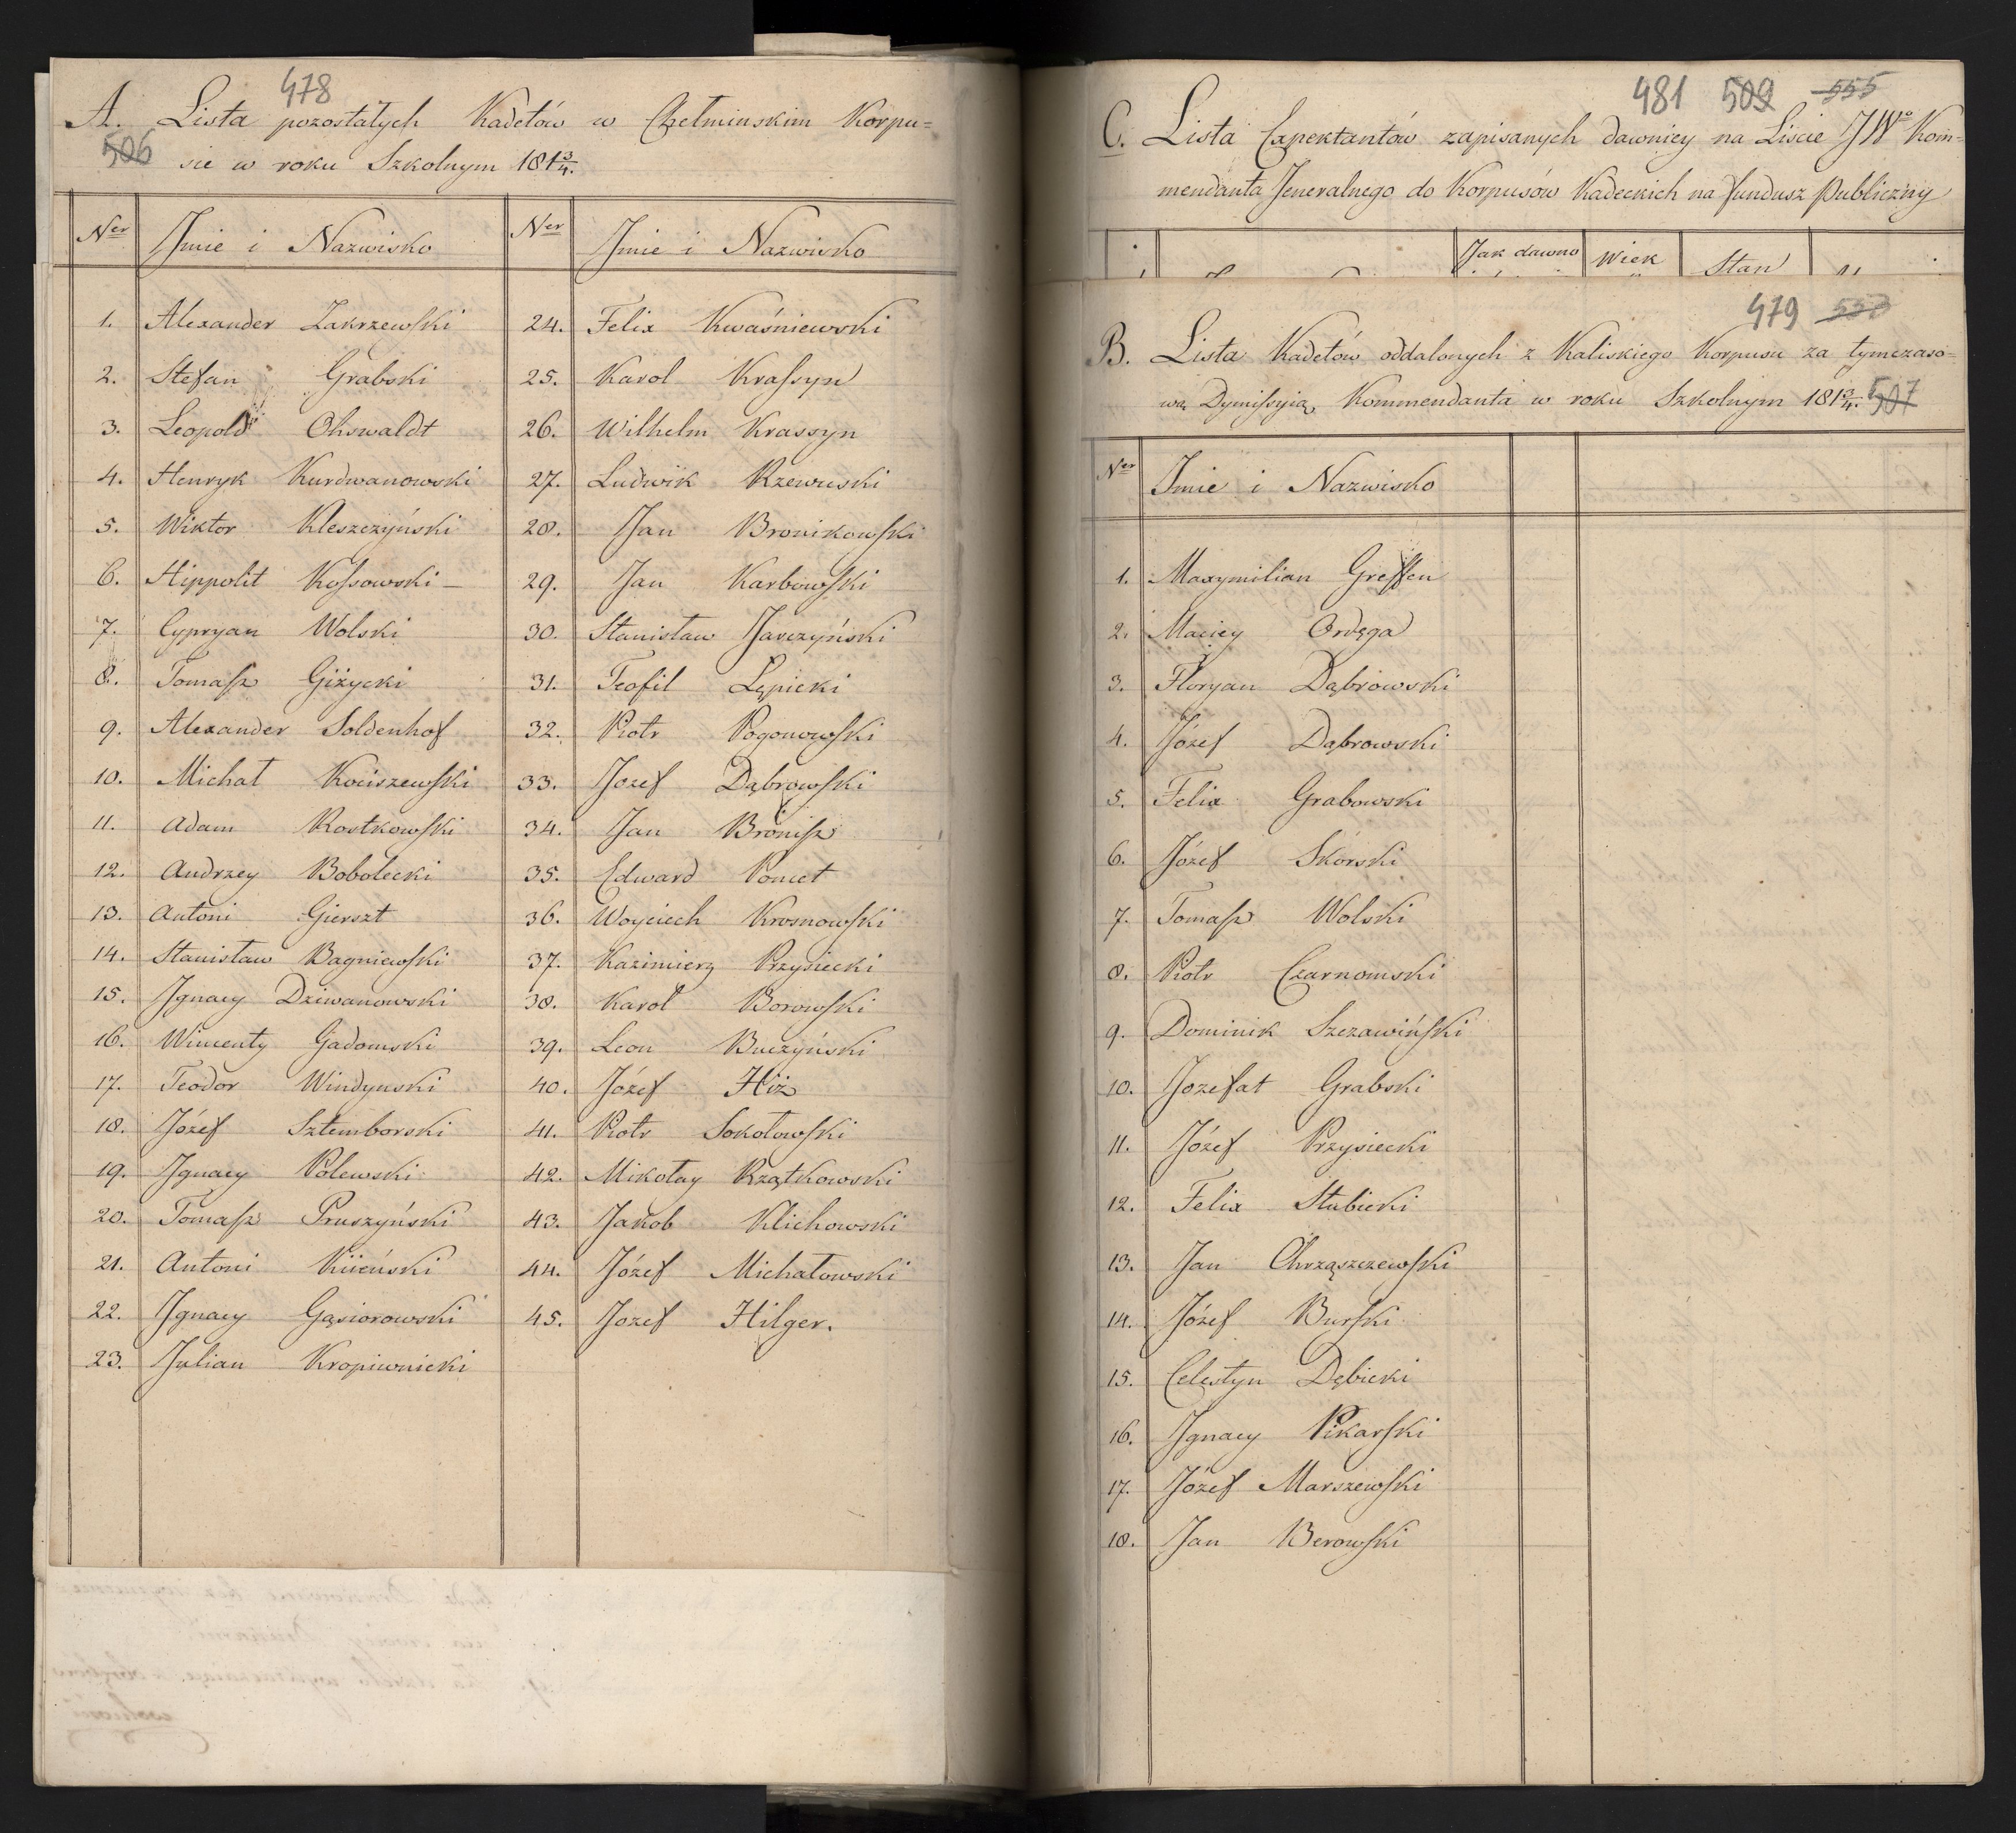 478
A. Lista pozostałych Kadetów w Chełminskim Korpu=
506 sie w roku Szkolnym 181 3/4.
Ner Jmie i Nazwisko Ner Jmie i Nazwisko
1. Alexander Zakrzewski 24. Felix Kwaśniewski
2. Stefan Grabski 25. Karol Krassyn
3. Leopold Ohswaldt 26. Wilhelm Krassyn
4. Henryk Kurdwanowski 27. Ludwik Rzewuski
5. Wiktor Kleszczyński 28. Jan Bronikowski
6. Hippolit Kossowski – 29. Jan Karbowski
7. Cypryan Wolski 30. Stanisław Jarczyński
8. Tomasz Giżycki 31. Teofil Lępicki
9. Alexander Soldenhof 32. Piotr Pogonowski
10. Michał Kociszewski 33. Jozef Dąbrowski
11. Adam Rostkowski 34. Jan Bronisz
12. Andrzey Bobolecki 35. Edward Poncet
13. Antoni Gierszt 36. Woyciech Krosnowski
14. Stanisław Bagniewski 37. Kazimierz Przysiecki
15. Jgnacy Dziwanowski 38. Karol Borowski
16. Wincenty Gadomski 39. Leon Buczyński
17. Teodor Windynski 40. Józef Hiż
18. Józef Sztemborski 41. Piotr Sokołowski
19. Jgnacy Polewski 42. Mikołay Rzątkowski
20. Tomasz Pruszyński 43. Jakob Klichowski
21. Antoni Kiieński 44. Józef Michałowski
22. Jgnacy Gąsiorowski 45. Jozef Hilger.
23. Julian Kropiwnicki
481 509 555
C. Lista Expektantów zapisanych dawniey na Liscie JWo Kom=
mendanta Jeneralnego do Korpusów Kadeckich na fundusz Publiczny
Jak dawno Wiek Stan
479 553
B. Lista Kadetów oddalonych z Kaliskiego Korpusu za tymczaso=
wą Dymissyią Kommendanta w roku Szkolnym 181 3/4. 507
Ner Jmie i Nazwisko
1. Maxymilian Greffen
2. Maciey Ordęga
3. Floryan Dąbrowski
4. Józef Dąbrowski
5. Felix Grabowski
6. Józef Skórski
7. Tomasz Wolski
8. Piotr Czarnomski
9. Dominik Szczawiński
10. Jozefat Grabski
11. Józef Przysiecki
12. Felix Słubicki
13. Jan Chrząszczewski
14. Józef Burski
15. Celestyn Dębicki
16. Jgnacy Pikarski
17. Józef Marszewski
18. Jan Berowski